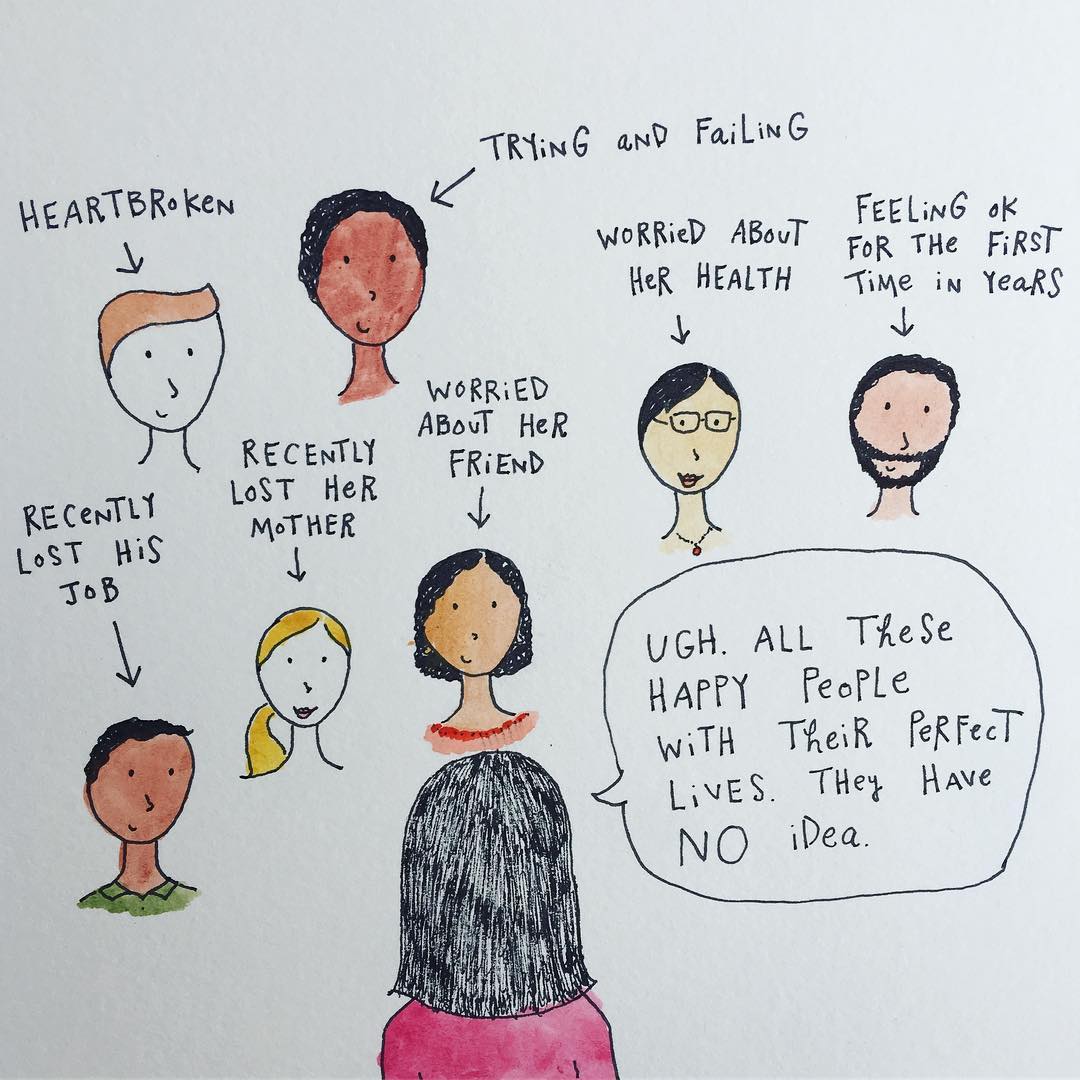 TRYiNG aND FaiLiNG
HEARTBRoKeN
WORRieD ABouT
HeR HEALTH
FEELiNG oK
FOR THe FiRST
TiMe iN YeaRS
WORRiED
ABouT HeR
FRiEND
RECENTLY
LoST HeR
MoTHER
RECeNTLY
LoST HiS
JoB
UGH. ALL THeSe
HAPPY PeoPLe
WiTH THeiR PeRFecT
LiVES. THey HAVe
NO iDea.